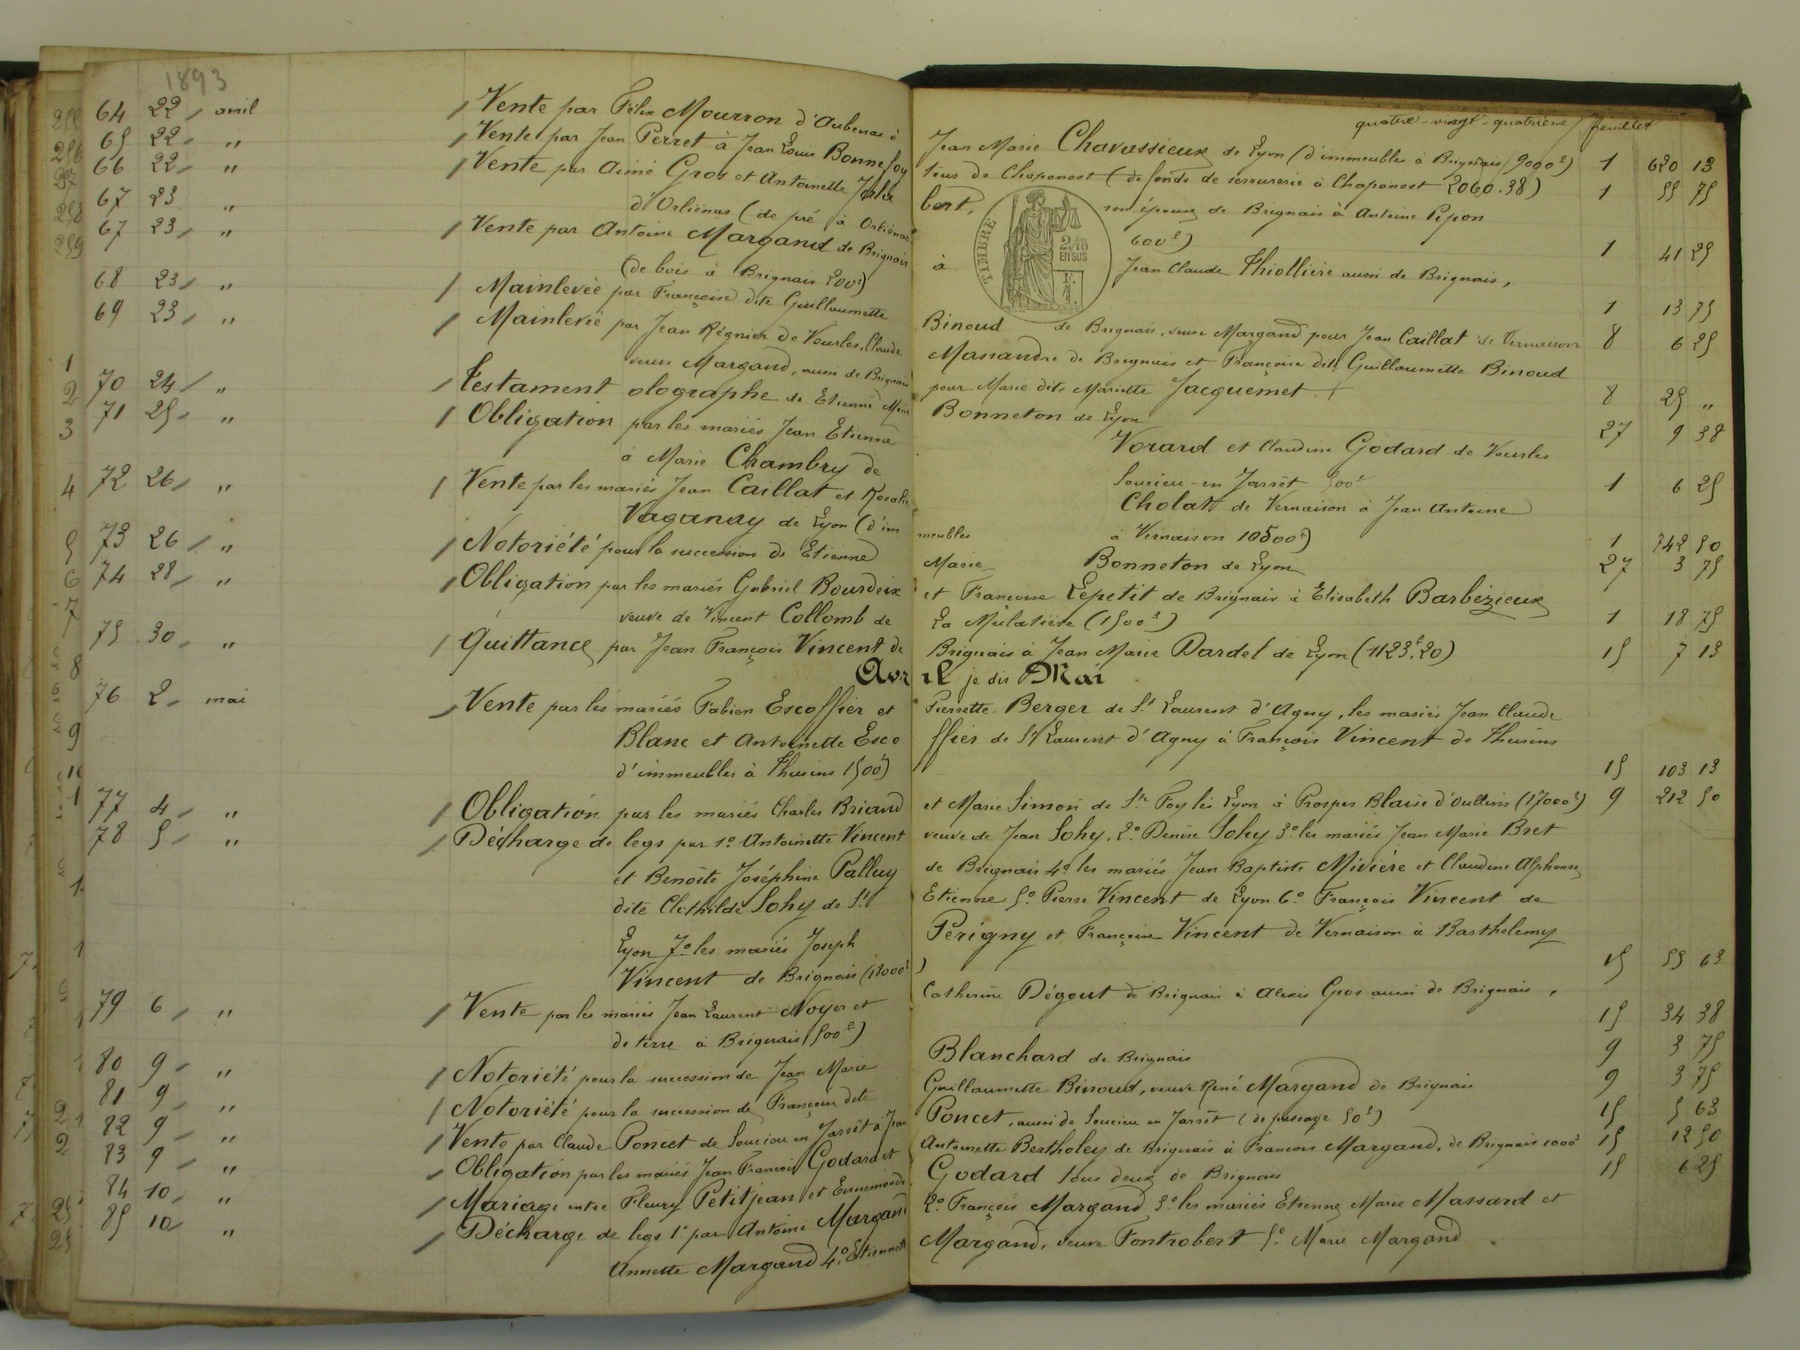 1893
quatre-vingt-quatrième feuillet
64 22 avril Vente par Félix Mourron d'Aubenas à Jean Marie Chavassieux de Lyon (d'immeubles à Brignais 9000f) 1 620 13
65 22 " Vente par Jean Perret à Jean Louis Bonnefoy tous de Chaponost (de fonds de serrurerie à Chaponost 2060.38) 1 55 75
66 22 " Vente par Aimé Gros et Antoinette bert, son épouse de Brignais à Antoine Pipon
67 23 " d'Orliénas (de pré à Orliénas 600f) 1 41 25
67 23 " Vente par Antoine Margand de Brignais à Jean Claude Thiollière aussi de Brignais,
(de bois à Brignais 200f) 1 13 75
68 23 " Mainlevée par Françoise dite Guillaumette Binoud de Brignais, veuve Margand pour Jean Caillat de Vernaison 8 6 25
69 23 " Mainlevée par Jean Régnier de Vourles, Claude Massandre de Brignais et Françoise dite Guillaumette Binoud
veuve Margand, aussi de Brignais pour Marie dite Mariette Jacquemet 8 25 "
70 24 " Testament olographe de Etienne Marie Bonneton de Lyon 27 9 38
71 25 " Obligation par les mariés Jean Etienne Vorard et Claudine Godard de Vourles
à Marie Chambry de Soucieu-en-Jarrêt 500f 1 6 25
72 26 " Vente par les mariés Jean Caillat et Rosalie Cholat de Vernaison à Jean Antoine
Vaganay de Lyon (d'immeubles à Vernaison 10500f) 1 742 50
73 26 " Notoriété pour la succession de Etienne Marie Bonneton de Lyon 27 3 75
74 28 " Obligation par les mariés Gabriel Bourdeix et Françoise Lepetit de Brignais à Elisabeth Barbézieux
veuve de Vincent Collomb de La Mulatière (1500f) 1 18 75
75 30 " Quittance par Jean François Vincent de Brignais à Jean Marie Dardel de Lyon (1123f.20) 15 7 13
Avril je dis Mai
76 2 mai Vente par les mariés Fabien Escoffier et Pierrette Berger de St Laurent d'Agny, les mariés Jean Claude
Blanc et Antoinette Escoffier de St Laurent d'Agny à François Vincent de Thurins
d'immeubles à Thurins 1500f) 15 103 13
77 4 " Obligation par les mariés Charles Briand et Marie Simon de Ste Foy lès Lyon à Prosper Blaise d'Oullins (17000f) 9 212 50
78 5 " Décharge de legs par 1o Antoinette Vincent veuve de Jean Sohy, 2o Denise Sohy 3o les mariés Jean Marie Bret
et Benoîte Joséphine Palluy de Brignais 4o les mariés Jean Baptiste Mivière et Claudine Alphonse
dite Clothilde Sohy de St Etienne 5o Pierre Vincent de Lyon 6o François Vincent de
Lyon 7o les mariés Joseph Perigny et Françoise Vincent de Vernaison à Barthelemy
Vincent de Brignais (13000f) 15 55 63
79 6 " Vente par les mariés Jean Laurent Noyer et Catherine Dégout de Brignais à Alexis Gros aussi de Brignais,
de terre à Brignais (500f) 15 34 38
80 9 " Notoriété pour la succession de Jean Marie Blanchard de Brignais 9 3 75
81 9 " Notoriété pour la succession de Françoise dite Guillaumette Binoud, veuve René Margand de Brignais 9 3 75
82 9 " Vente par Claude Poncet de Soucieu en Jarrêt à Jean Poncet, aussi de Soucieu en Jarrêt (de passage 50f) 15 5 63
83 9 " Obligation par les mariés Jean François Godard et Antoinette Bertholey de Brignais à François Margand, de Brignais 1000f 15 12 50
84 10 " Mariage entre Fleury Petitjean et Ennemonde Godard tous deux de Brignais 15 6 25
85 10 " Décharge de legs 1o par Antoine Margand 2o François Margand 3o les mariés Etienne Marie Massard et
Annette Margand 4o Etiennette Margand, veuve Fontrobert 5o Marie Margand
TIMBRE
2/10
EN SUS